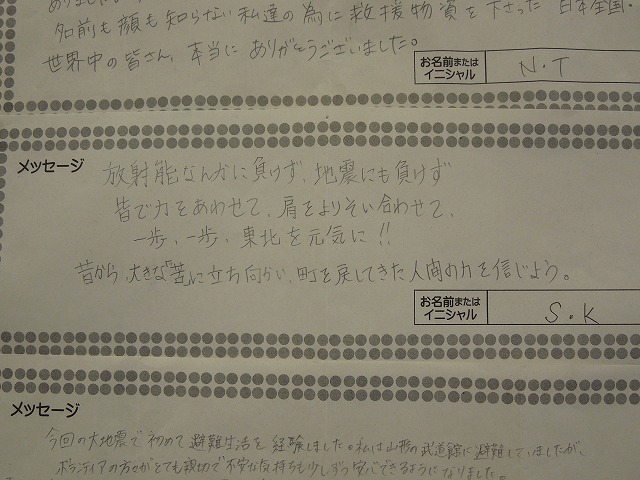 名前も顔も知らない私達の為に救援物資を下さった 日本全国・
世界中の皆さん、本当に ありがとうございました。
お名前または
イニシャル
N・T
メッセージ
放射能なんかに負けず、地震にも負けず
皆で力をあわせて、肩をよりそい合わせて、
一歩、一歩、東北を元気に!!
昔から、大きな「苦」に立ち向かい、町を戻してきた人間の力を信じよう。
お名前または
イニシャル
S・K
メッセージ
今回の大地震で初めて避難生活を経験しました。私は山形の武道館に避難していましたが、
ボランティアの方々がとても親切で不安な気持ちも少しずつ安心できるようになりました。